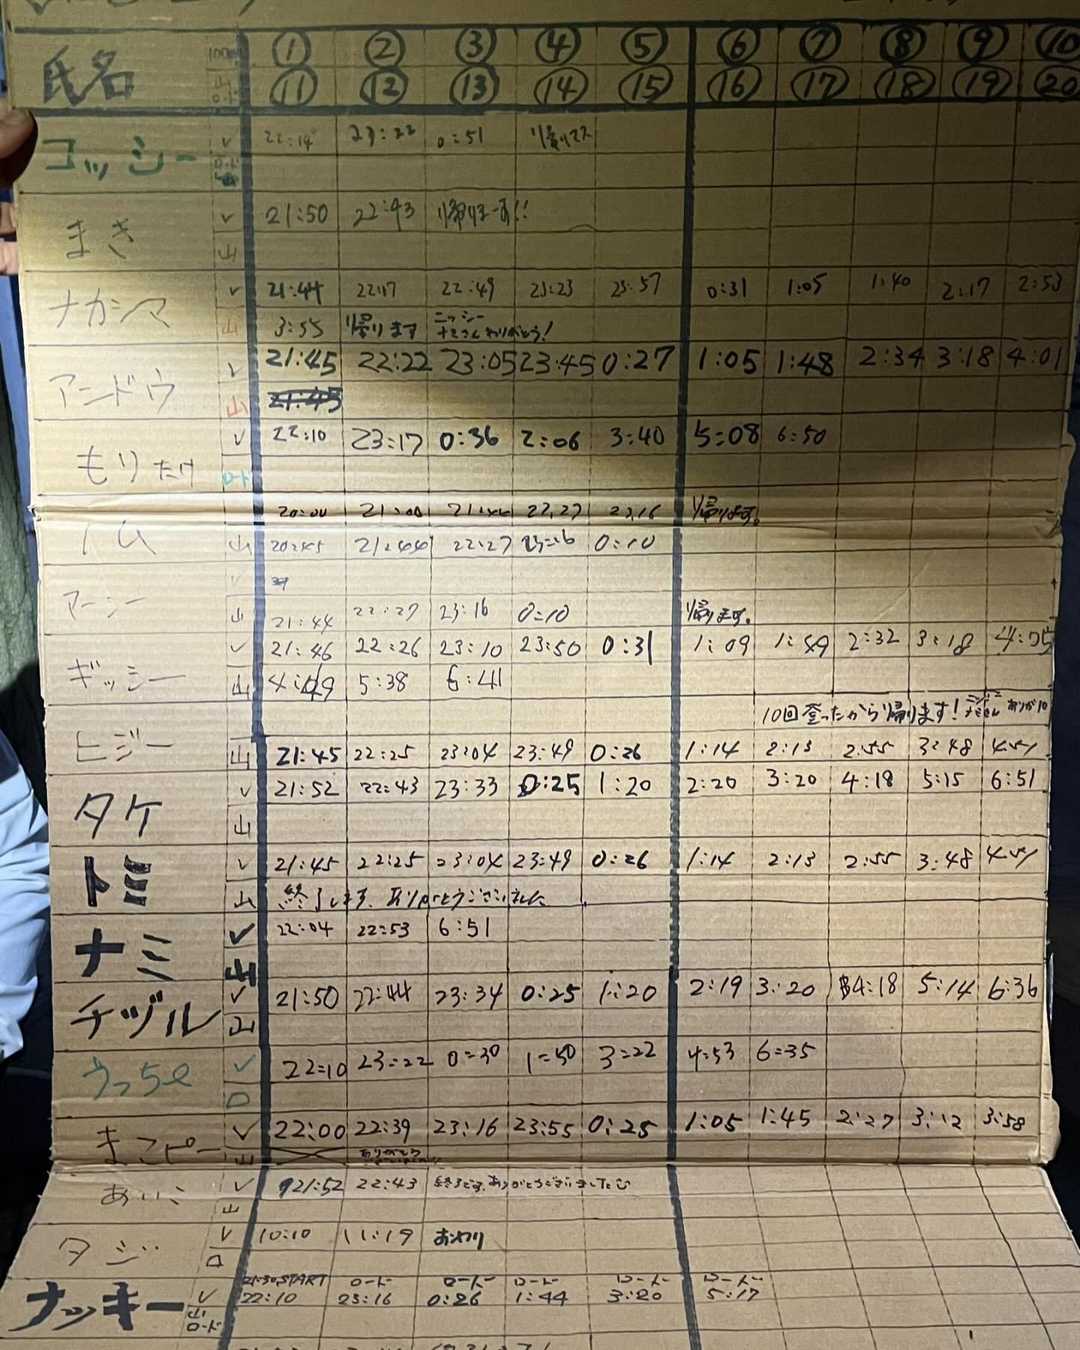 氏名 ① ② ③ ④ ⑤ ⑥ ⑦ ⑧ ⑨ ⑩
山 ⑪ ⑫ ⑬ ⑭ ⑮ ⑯ ⑰ ⑱ ⑲ ⑳
コッシー ✓ 22:14 23:22 0:51
まき ✓ 21:50 22:43 帰りまーす!!
山
ナカシマ ✓ 21:44 22:17 22:49 23:23 23:57 0:31 1:05 1:40 2:17 2:53
山 3:55 帰ります ニッシー ナミさんありがとう!
アンドウ ✓ 21:45 22:22 23:05 23:45 0:27 1:05 1:48 2:34 3:18 4:01
山 21:45
もりたけ ✓ 22:10 23:17 0:36 2:06 3:40 5:08 6:50
ロード
20:00 21:00 21:44 22:27 23:16 帰ります。
ム 山 20:45 21:44 22:27 23:16 0:10
マーシー ✓
山 21:44 22:27 23:16 0:10 帰ります。
ギッシー ✓ 21:46 22:26 23:10 23:50 0:31 1:09 1:49 2:32 3:18 4:05
山 4:49 5:38 6:41
10回登ったから帰ります!
ヒジー 山 21:45 22:25 23:04 23:49 0:26 1:14 2:13 2:55 3:48 4:51
タケ ✓ 21:52 22:43 23:33 0:25 1:20 2:20 3:20 4:18 5:15 6:51
山
トミ ✓ 21:45 22:25 23:04 23:49 0:26 1:14 2:13 2:55 3:48 4:51
山 終了します、ありがとうございました
ナミ ✓ 22:04 22:53 6:51
山
チヅル ✓ 21:50 22:44 23:34 0:25 1:20 2:19 3:20 4:18 5:14 6:36
山
うっちe ✓ 22:10 23:22 0:30 1:50 3:22 4:53 6:35
ロ
まこぴー ✓ 22:00 22:39 23:16 23:55 0:25 1:05 1:45 2:27 3:12 3:58
山 ありがとう
あいこ ✓ 21:52 22:43 終了です、ありがとうございました
山
タジ ✓ 10:10 11:19 おわり
ロ
21:30START ロード ロード ロード ロード ロード
ナッキー ✓ 22:10 23:16 0:26 1:44 3:20 5:17
山
ロード